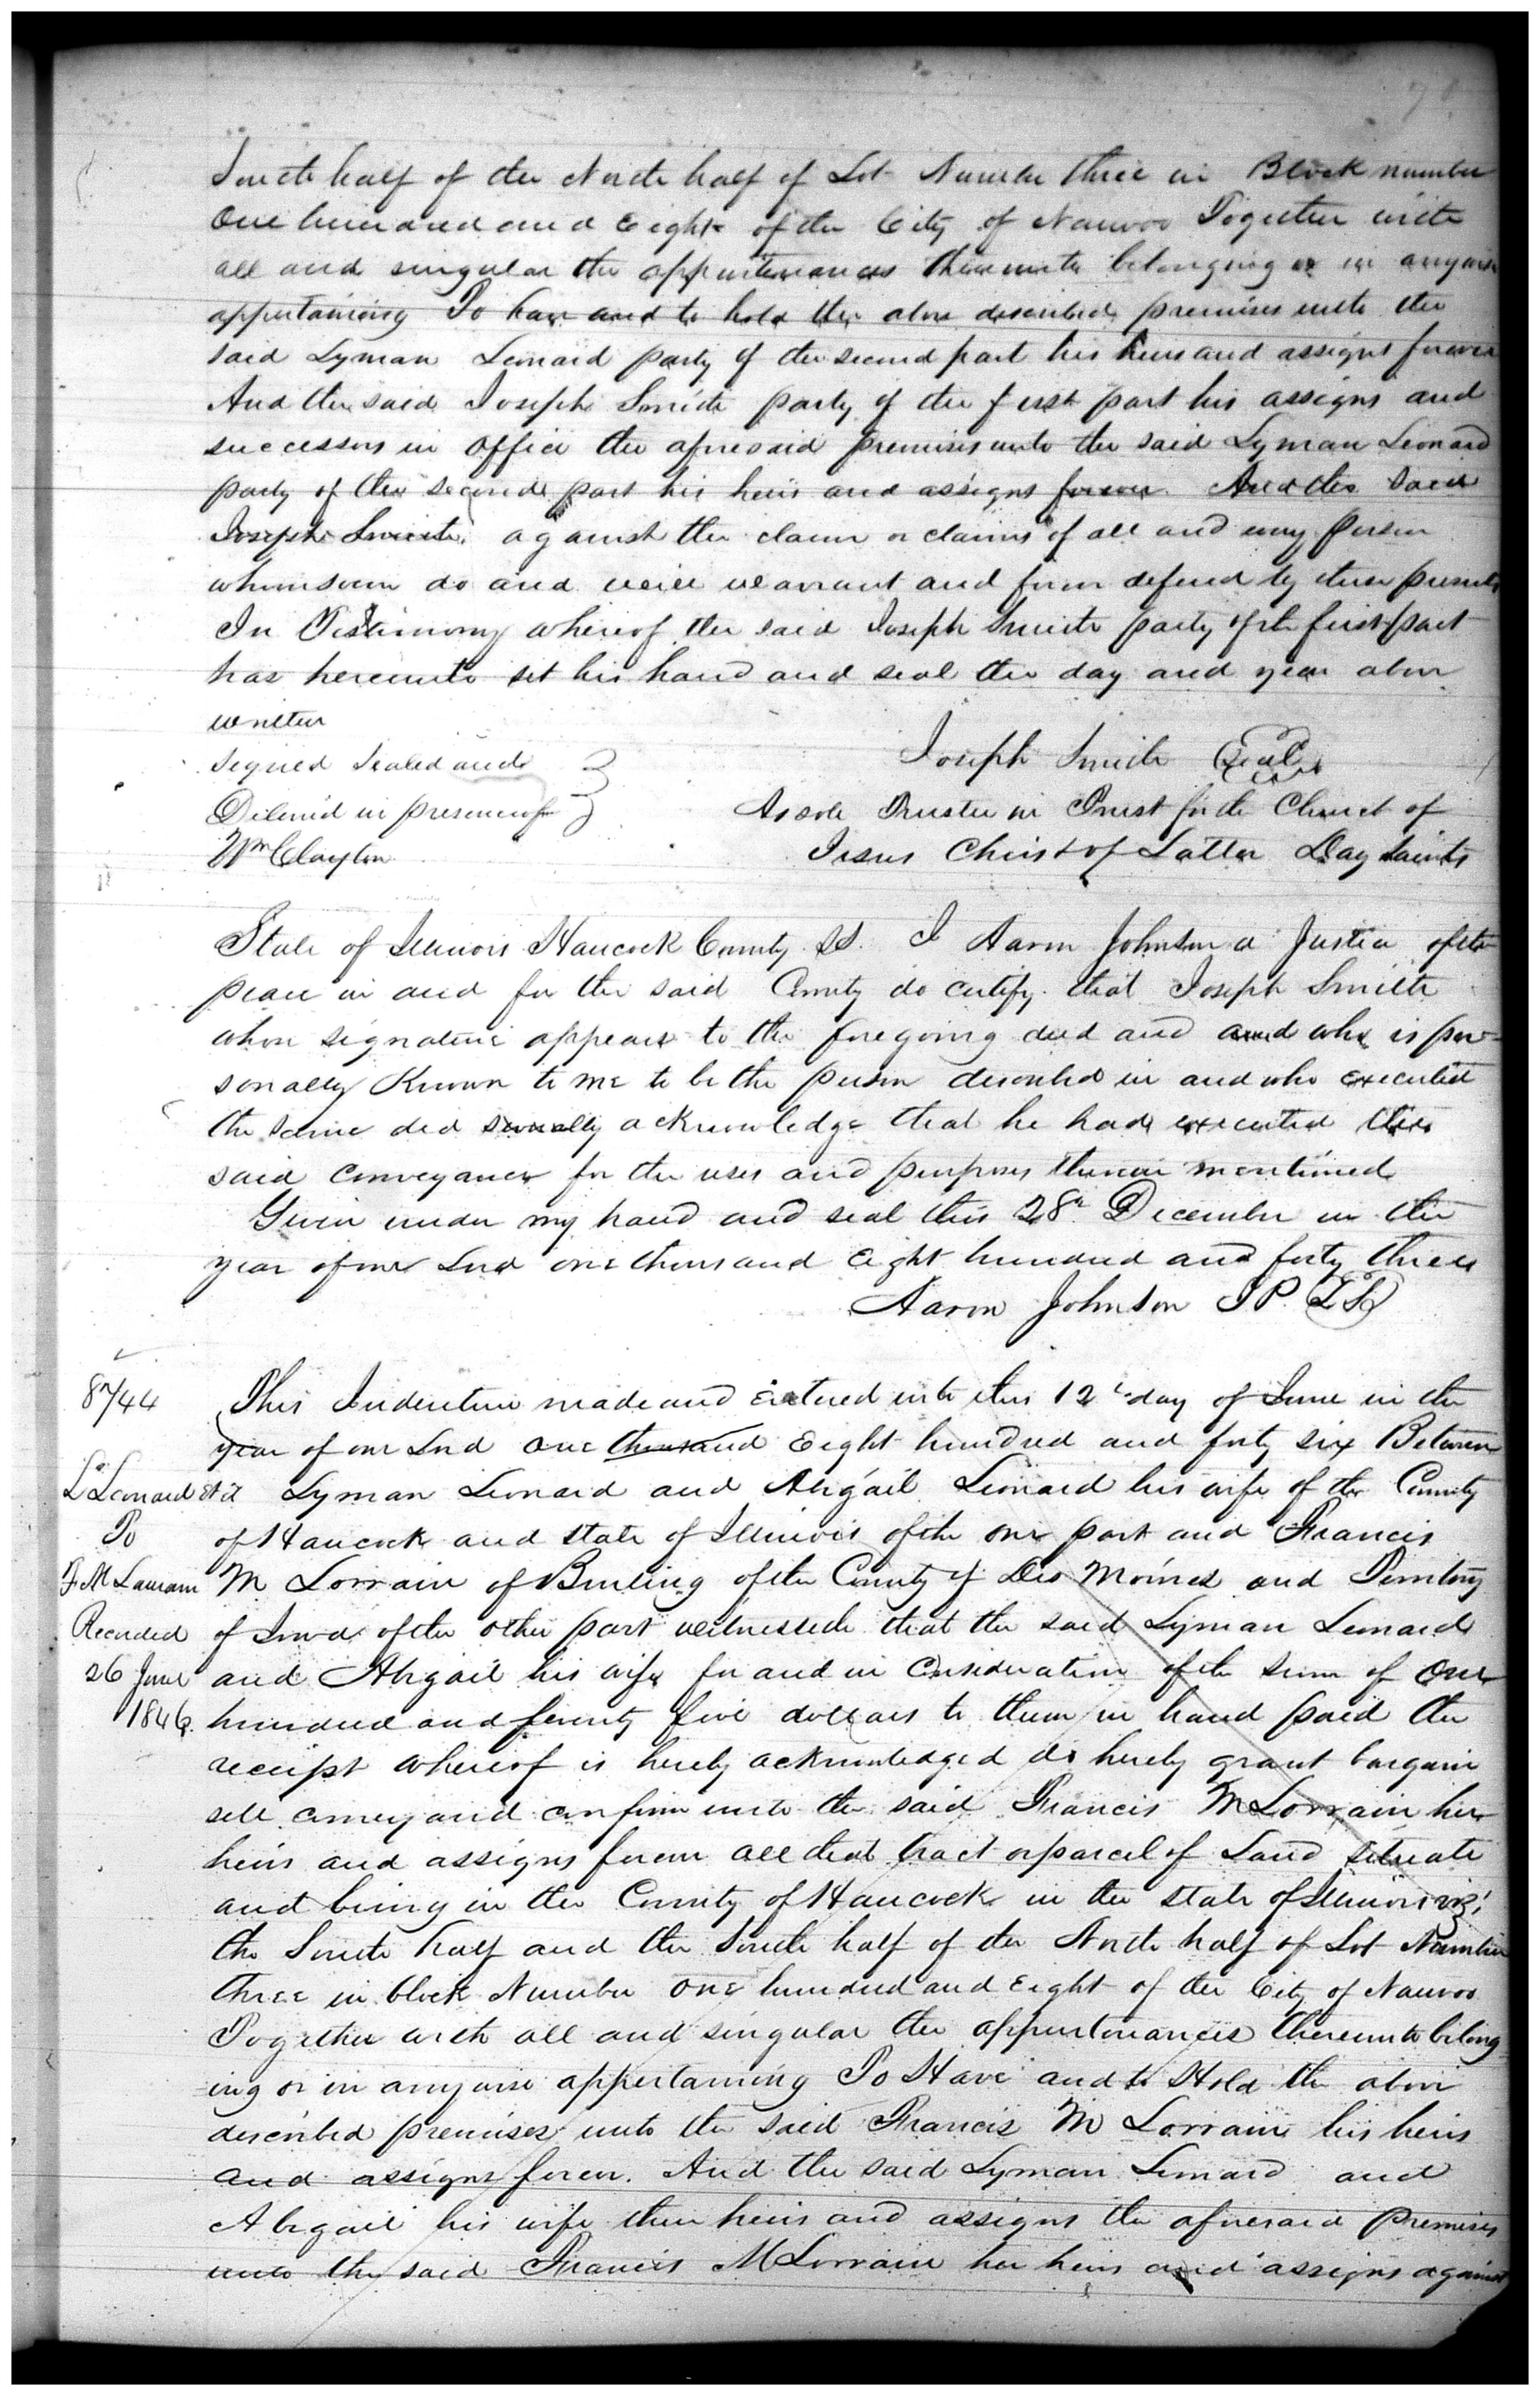 South half of the North half of Lot Number three in Block number
One hundred and Eight of the City of Nauvoo Together with
all and singular the appurtenances thereunto belonging or in anywise
appertaining To have and to hold the above described premises unto the
said Lyman Leonard party of the second part his heirs and assigns forever
And the said Joseph Smith party of the first part his assigns and
successors in office the aforesaid premises unto the said Lyman Leonard
party of the second part his heirs and assigns forever And the said
Joseph Smith, against the claim or claims of all and every person
whomsoever do and will warrant and forever defend by these presents
In Testimony whereof the said Joseph Smith party of the first part
has hereunto set his hand and seal the day and year above
written
Signed Sealed and
Joseph Smith Seal
Delivered in presence of
As sole Trustee in Trust for the Church of
Wm Clayton
Jesus Christ of Latter Day Saints
State of Illinois Hancock County SS. I Aaron Johnson a Justice of the
peace in and for the said County do certify that Joseph Smith
whose signature appears to the foregoing deed and and who is per-
sonally Known to me to be the person described in and who executed
the same did severally acknowledge that he had executed the
said conveyance for the uses and purposes therein mentioned
Given under my hand and seal this 28th December in the
year of our Lord one thousand Eight hundred and forty three
Aaron Johnson J P. L S
8744
This Indenture made and Entered into this 12th day of June in the
year of our Lord one thousand Eight hundred and forty six Between
L. Leonard et al
Lyman Leonard and Abigail Leonard his wife of the County
To
of Hancock and state of Illinois of the one part and Francis
F. M Lauram
M Lorrain of Burling of the County of Des Moines and Territory
Recorded
of Iowa of the other part witnesseth that the said Lyman Leonard
26 June
and Abigail his wife for and in Consideration of the sum of One
1846.
hundred and seventy five dollars to them in hand paid the
receipt whereof is hereby acknowledged do hereby grant bargain
sell convey and confirm unto the said Francis M Lorrain her
heirs and assigns forever all that tract or parcel of Land situate
and being in the County of Hancock in the State of Illinois viz;
the South half and the South half of the North half of Lot Number
three in block Number one hundred and Eight of the City of Nauvoo
Together with all and singular the appurtenances thereunto belong
ing or in anywise appertaining To Have and to Hold the above
described premises unto the said Francis M Lorrain his heirs
and assigns forever. And the said Lyman Leonard and
Abigail his wife their heirs and assigns the aforesaid premises
unto the said Francis M Lorrain her heirs and assigns against